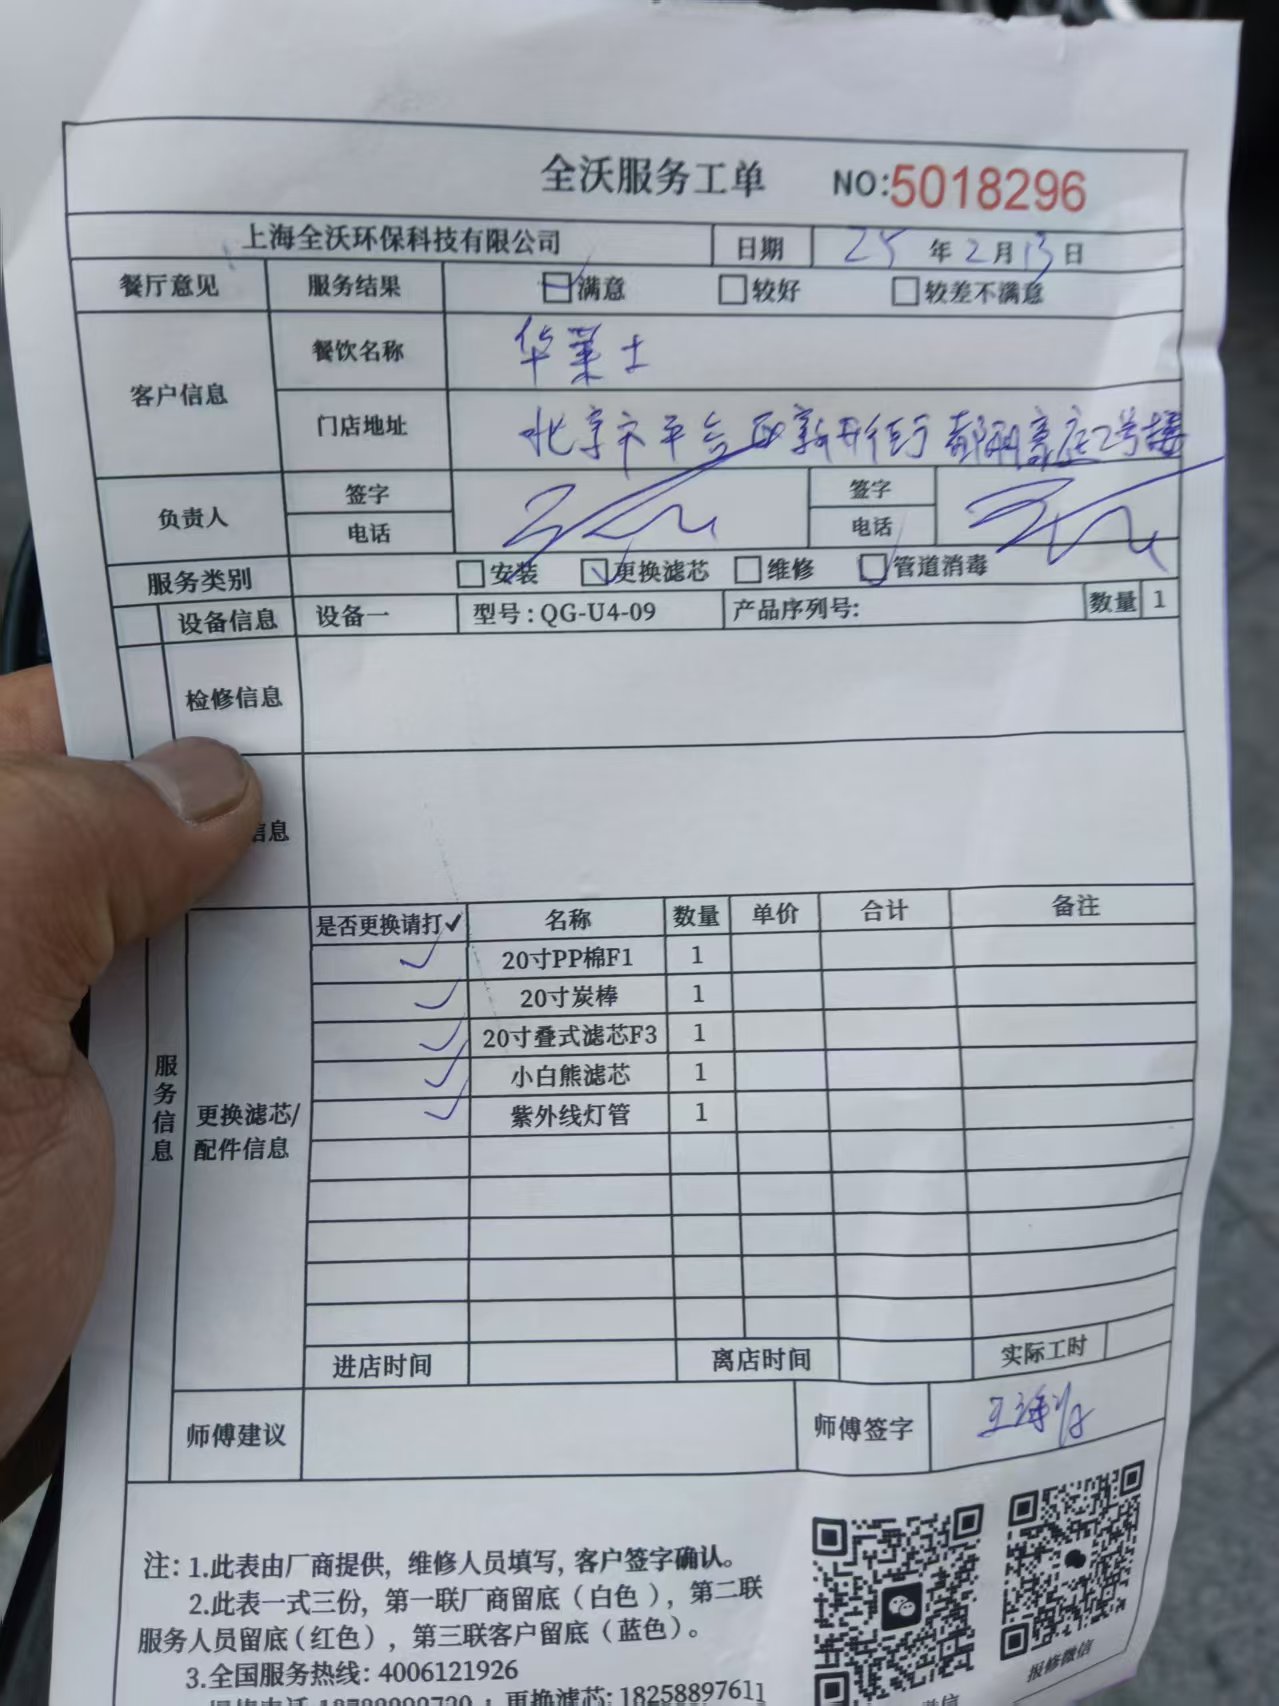 全沃服务工单 NO:5018296
上海全沃环保科技有限公司 日期 25年2月13日
餐厅意见 服务结果 满意 较好 较差不满意
客户信息 餐饮名称 华莱士
门店地址 北京市平谷区新开街 都丽豪庭2号楼
负责人 签字 签字
电话 电话
服务类别 安装 更换滤芯 维修 管道消毒
设备信息 设备一 型号:QG-U4-09 产品序列号: 数量 1
检修信息
信息
是否更换请打✓ 名称 数量 单价 合计 备注
✓ 20寸PP棉F1 1
✓ 20寸炭棒 1
✓ 20寸叠式滤芯F3 1
✓ 小白熊滤芯 1
✓ 紫外线灯管 1
服务信息
更换滤芯/
配件信息
进店时间 离店时间 实际工时
师傅建议 师傅签字
注: 1.此表由厂商提供, 维修人员填写, 客户签字确认。
2.此表一式三份, 第一联厂商留底（白色）, 第二联
服务人员留底(红色）, 第三联客户留底（蓝色）。
3.全国服务热线: 4006121926
更换滤芯: 18258897611
报修微信
微信